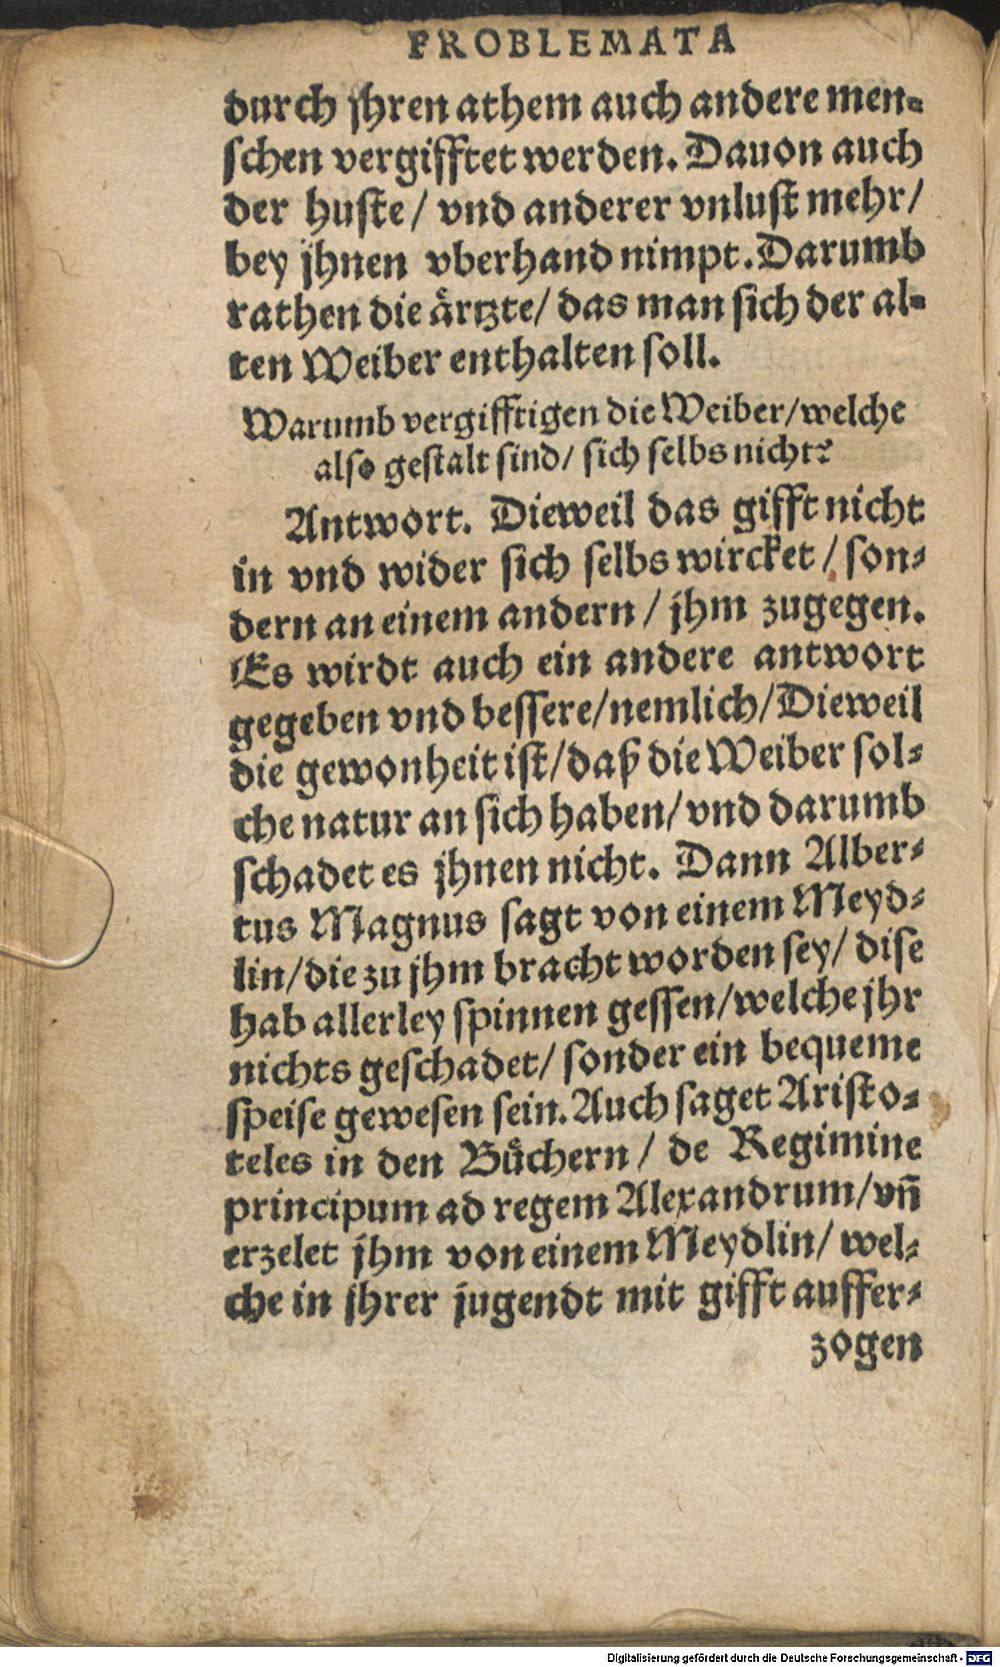 PROBLEMATA
durch jhren athem auch andere men⸗
schen vergifftet werden. Dauon auch
der huste / vnd anderer vnlust mehr /
bey jhnen vberhand nimpt. Darumb
rathen die ärtzte / das man sich der al⸗
ten Weiber enthalten soll.
Warumb vergifftigen die Weiber / welche
also gestalt sind / sich selbs nicht?
Antwort. Dieweil das gifft nicht
in vnd wider sich selbs wircket / son⸗
dern an einem andern / jhm zugegen.
Es wirdt auch ein andere antwort
gegeben vnd bessere / nemlich / Dieweil
die gewonheit ist / daß die Weiber sol⸗
che natur an sich haben / vnd darumb
schadet es jhnen nicht. Dann Alber⸗
tus Magnus sagt von einem Meyd⸗
lin / die zu jhm bracht worden sey / dise
hab allerley spinnen gessen / welche jhr
nichts geschadet / sonder ein bequeme
speise gewesen sein. Auch saget Aristo⸗
teles in den Bůchern / de Regimine
principum ad regem Alexandrum / vñ
erzelet jhm von einem Meydlin / wel⸗
che in jhrer jugendt mit gifft auffer⸗
zogen
Digitalisierung gefördert durch die Deutsche Forschungsgemeinschaft - DFG